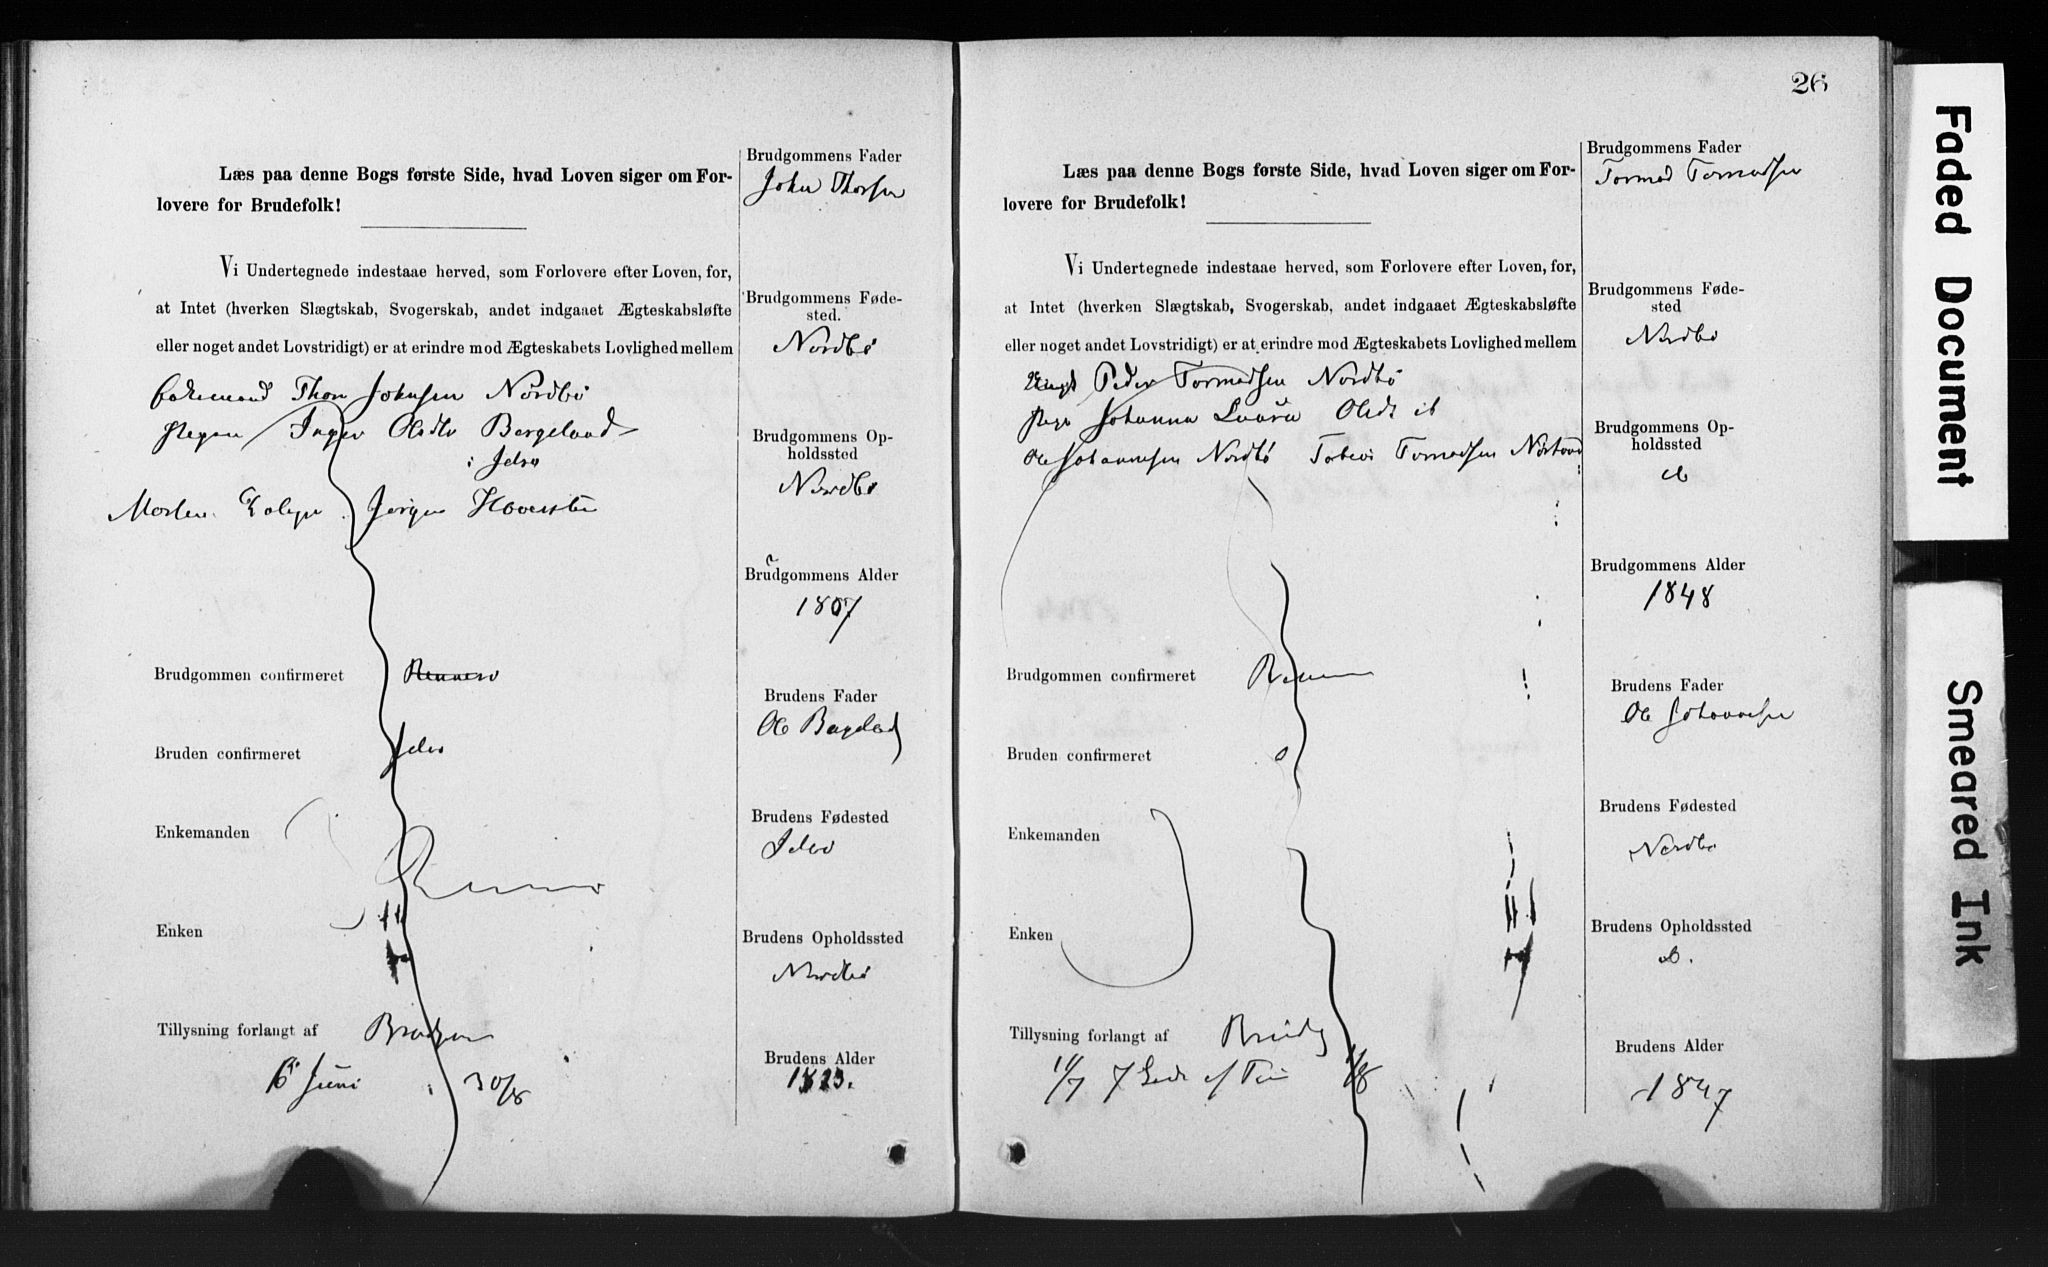 Læs paa denne Bogs første Side, hvad Loven siger om For-
lovere for Brudefolk!
Vi Undertegnede indestaae herved, som Forlovere efter Loven, for,
at Intet (hverken Slægtskab, Svogerskab, andet indgaaet Ægteskabsløfte
eller noget andet Lovstridigt) er at erindre mod Ægteskabets Lovlighed mellem
Thon Johnsen Nordbø
Pigen Inger Olsdtr Bergeland
i Jelsø
Morten Jørgen
Brudgommen confirmeret Rennesø
Bruden confirmeret Jelsø
Enkemanden
Enken
Tillysning forlangt af Brudgom
6 Juni 30/8
Brudgommens Fader
John Thorsen
Brudgommens Føde-
sted.
Nordbø
Brudgommens Op-
holdssted
Nordbø
Brudgommens Alder
1807
Brudens Fader
Ole Bergeland
Brudens Fødested
Jelsø
Brudens Opholdssted
Nordbø
Brudens Alder
1823.
26
Læs paa denne Bogs første Side, hvad Loven siger om For-
lovere for Brudefolk!
Vi Undertegnede indestaae herved, som Forlovere efter Loven, for,
at Intet (hverken Slægtskab, Svogerskab, andet indgaaet Ægteskabsløfte
eller noget andet Lovstridigt) er at erindre mod Ægteskabets Lovlighed mellem
Ungk Peder Tormodsen Nordbø
Pige Johanna Laura Olsdt ib
Ole Johannesen Nordbø Tormodsen
Brudgommen confirmeret
Bruden confirmeret
Enkemanden
Enken
Tillysning forlangt af Brudg
11/7 7 1/8
Brudgommens Fader
Tormod Tormodsen
Brudgommens Føde-
sted
Nordbø
Brudgommens Op-
holdssted
Brudgommens Alder
1848
Brudens Fader
Ole Johannesen
Brudens Fødested
Nordbø
Brudens Opholdssted
Brudens Alder
1847
Faded Document
Smeared Ink